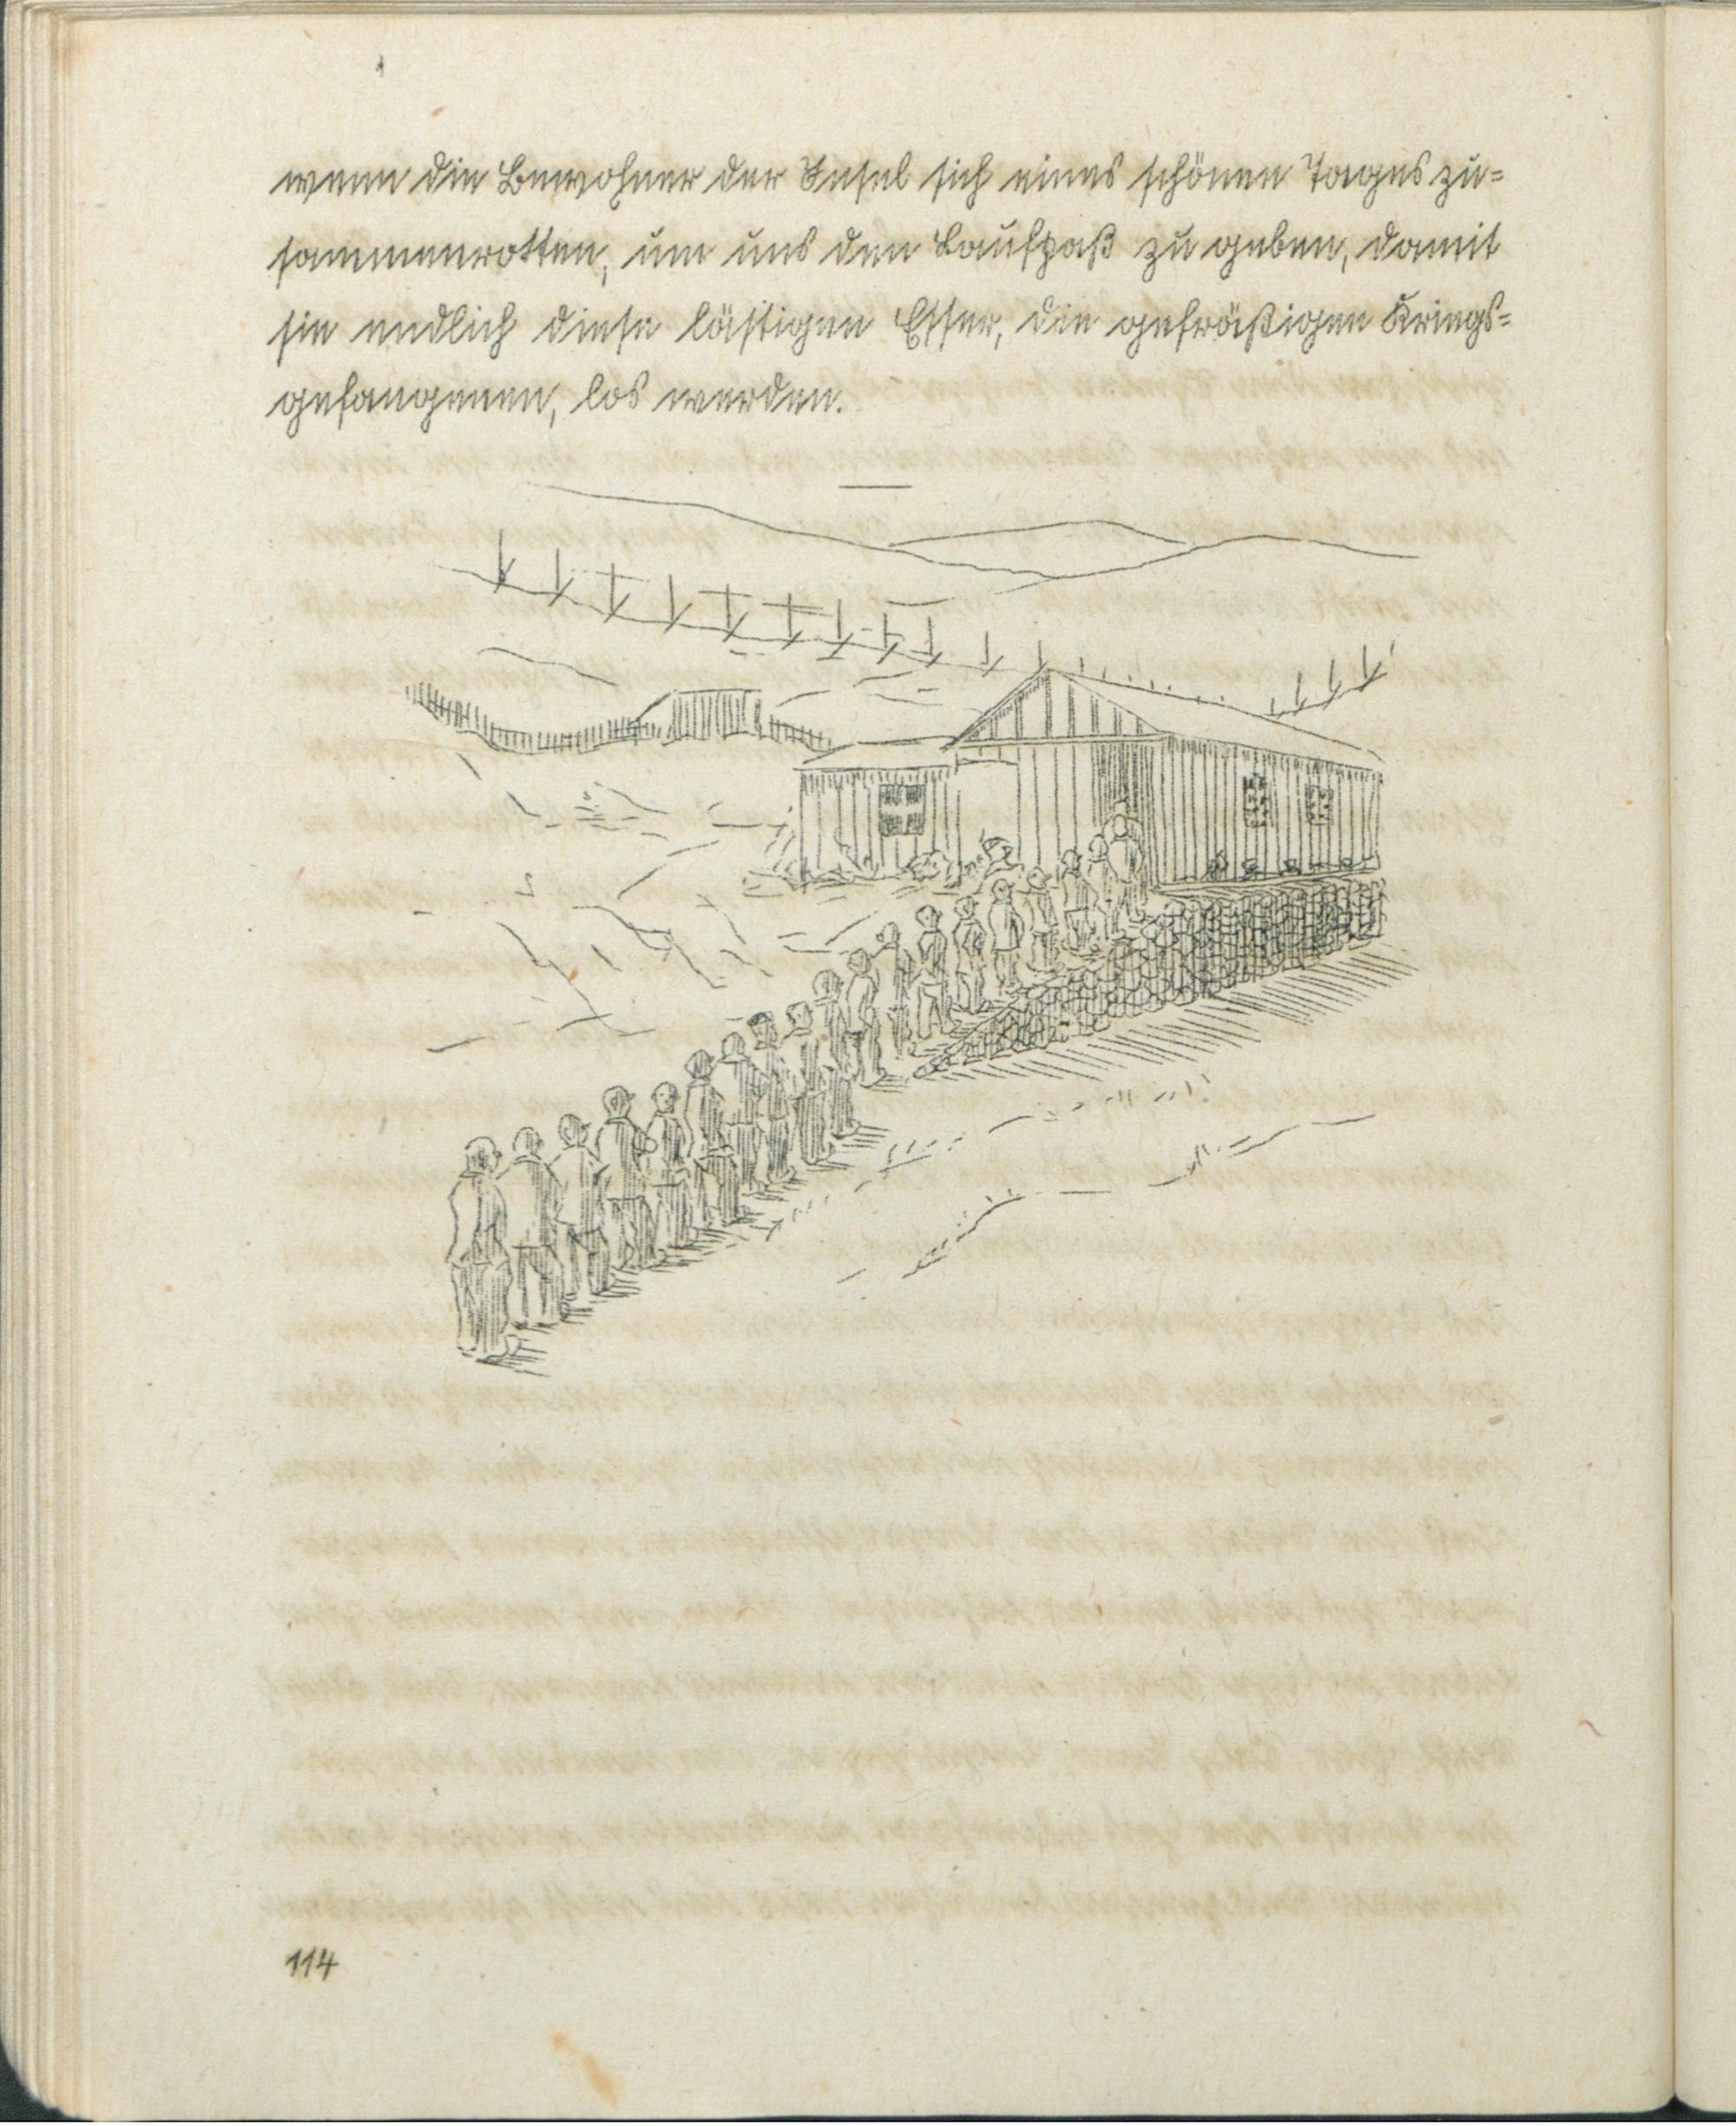 wenn die Bewohner der Insel sich eines schönen Tages zu=
sammenrotten, um uns den Laufpaß zu geben, damit
sie endlich diese lästigen Esser, die gefräßigen Kriegs=
gefangenen, los werden.
114